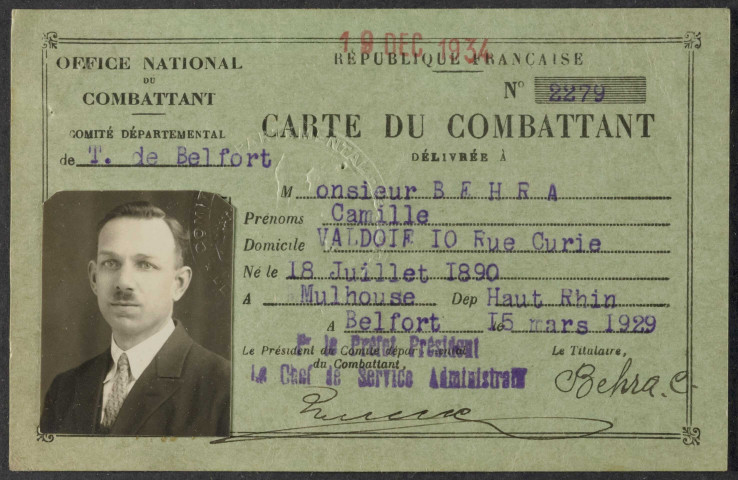 19 DEC. 1934
OFFICE NATIONAL
DU
COMBATTANT
COMITÉ DÉPARTEMENTAL
de T. de Belfort
RÉPUBLIQUE FRANÇAISE
N° 2279
CARTE DU COMBATTANT
DÉLIVRÉE À
Monsieur BEHRA
Prénoms Camille
Domicile VALDOIE IO Rue Curie
Né le I8 Juillet I890
A Mulhouse Dép Haut Rhin
A Belfort le I5 mars I929
Le Président du Comité départemental
du Combattant,
Pr le Préfet Président
Le Chef de Service Administratif
Le Titulaire,
Behra. C.